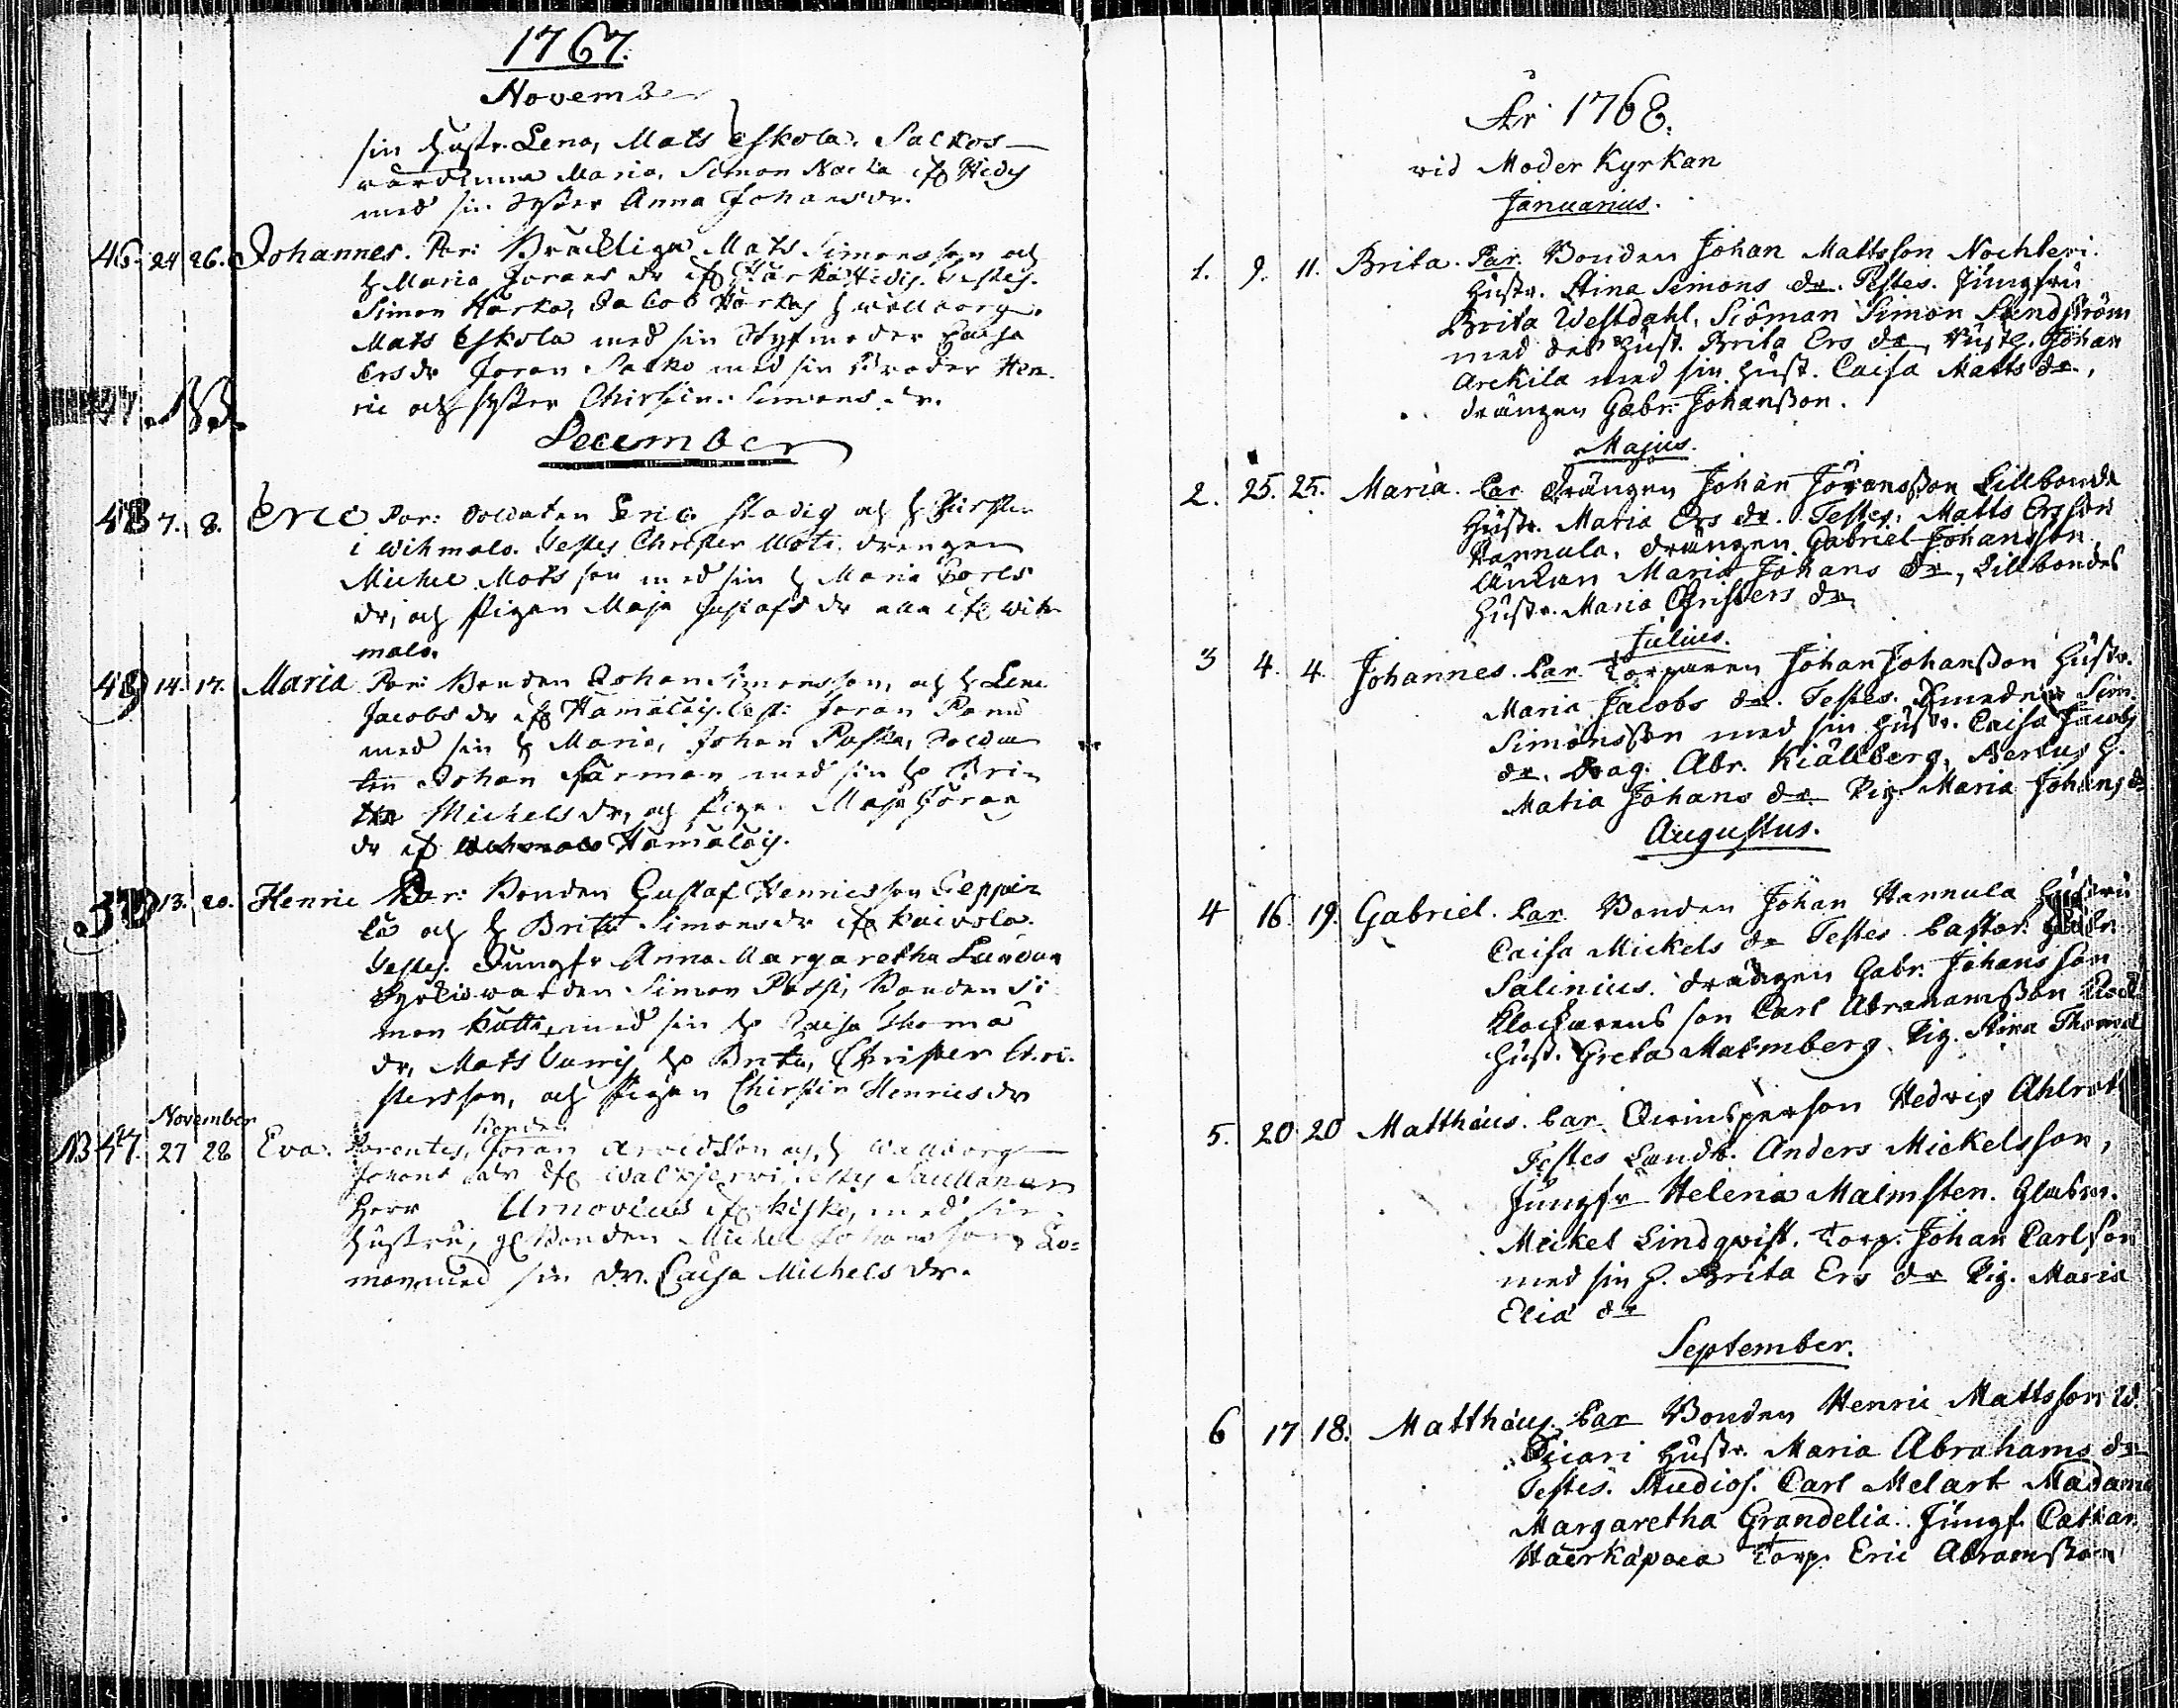 1767.
November
sin hustr. Lena, Mats Eskola. Sackos
wärdinna Maria, Simon
med sin Syster Anna Johansdr.
46. 24 26. Johannes. Par: Mats Simonsson och
h Maria Jorans dr Testes.
Simon Härka, Jacob Härkas h wallborg.
Mats Eskola med sin Styfmoder Caisa
Ersdr Joran Sacko med sin Broder Hen
ric och syster Chirstin Simons dr.
December
48 7. 8. Eric Par: Soldaten Eric Stadig och h Kirstin
i Wihmalo. Testes Christer drengen
Michel Matsson med sin h Maria Carls
dr, och Pigan Maja Gustafs dr alla Wih
malo.
49 14. 17. Maria Par: Bonden Johan Simonsson, och h Lena
Jacobs dr Hämälöis. Test: Joran
med sin h Maria, Johan Paska, Solda
ten Johan Färman med sin h Bri
ta Michels dr, och Pigan Maja Joran
dr Hämälöis.
50 13. 20. Henric Par: Bonden Gustaf Henricsson Seppä
lä och h Brita Simonsdr Kaivola.
Testes. Jungfr Anna Margaretha
Kyrkiowärden Simon Passi, Bonden Si
mon med sin h Caisa Thoma
dr, Mats h Brita, Christer Chri
stersson, och Pigan Chirstin Henricsdr
November
Bonden
NB 47. 27 28 Eva. Parentes, Joran Arvidsson och h Wallborg
Johans dr Walkjerwi Testes
Herr Urnovius Kisko, med sin
Hustru, Bonden Michel Johansson Lo=
man med sin dr. Caisa Michels dr.
År 1768.
wid Moder Kyrkan
Januarius.
1. 9. 11. Brita. Par. Bonden Johan Mattsson Nochteri.
Hustr. Stina Simons dr. Testes. Jungfru
Brita Westdahl, Siöman Simon Sundström
med des Hust. Brita Ers dr, Johan
Arckila med sin Hust. Caisa Matts dr.,
drängen Gabr: Johansson.
Majus.
2. 25. 25. Maria. Par. Drängen Johan Jöransson Lillbonda
Hustr. Maria Ers dr. Testes. Matts Ersson
Hannula, drängen Gabriel Johansson
Änkan Maria Johans dr, Lillbondas
Hustr. Maria Christers dr
Julius.
3 4. 4. Johannes. Par. Torparen Johan Johansson Hustr.
Maria Jacobs dr. Testes. Smeden Sim.
Simonsson med sin Hustr. Caisa Jacobs
dr. Drag. Abr. Kiällberg, H.
Maria Johans dr. Pig. Maria Johans dr
Augustus.
4 16 19. Gabriel. Par. Bonden Johan Hannula Hustru
Caisa Mickels dr Testes Pastor. Gabr.
Salinius. drängen Gabr. Johansson
Klockarens son Carl Abrahamsson
Hust. Greta Malmberg. Pig. Stina Thomæ
5. 20 20 Matthäus. Par. Qvinsperson Hedvig Ahlrot
Testes Landb. Anders Mickelsson,
Jungfr Helena Malmsten. Glasm.
Mickel Lindqvist. Torp. Johan Carlson
med sin H. Brita Ers dr Pig. Maria
Eliæ dr
September.
6 17 18. Matthäus. Par Bonden Henric Mattsson
Hustr. Maria Abrahams dr
Testes. Studios. Carl Melart Madame
Margaretha Grandelia. Jungf. Cathar.
Haerkäpaea Torp. Eric Abramsson